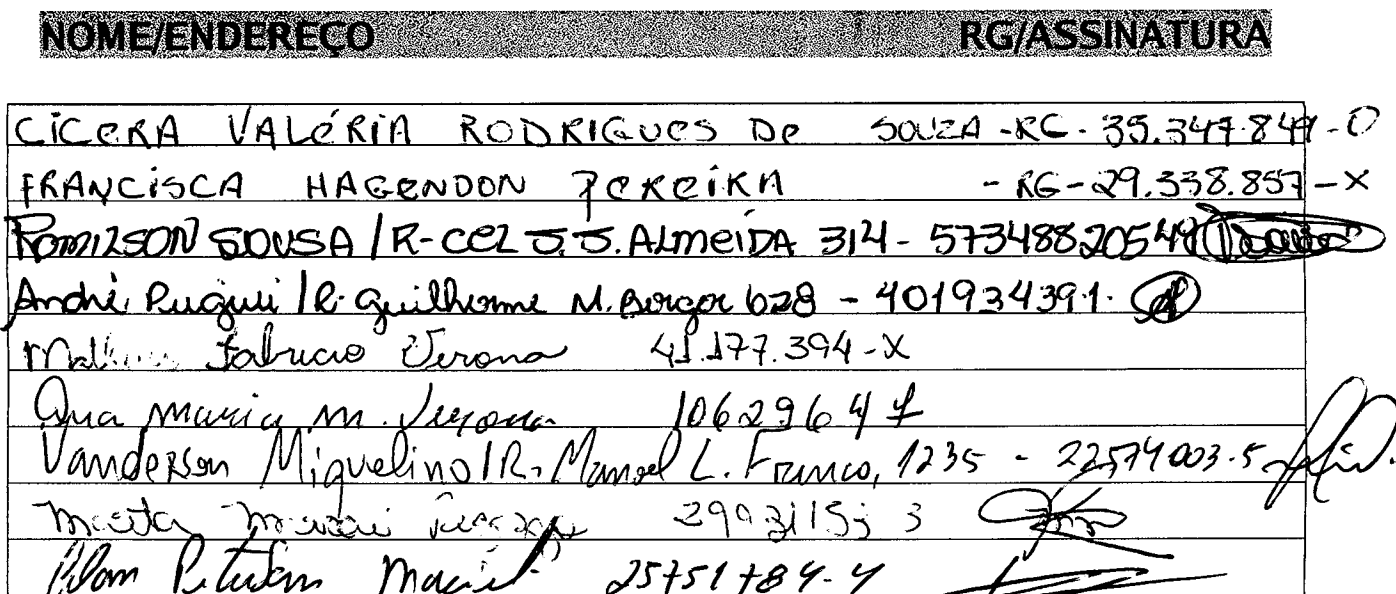 NOME/ENDEREÇO RG/ASSINATURA
CÍCERA VALÉRIA RODRIGUES DE SOUZA - RG - 35.347.847-0
FRANCISCA HAGENDON PEREIRA - RG - 29.338.857-X
ROMILSON SOUSA / R-CEL J.J. ALMEIDA 314 - 57348820549
André / R. Guilherme M. 628 - 401934391.
Fabricio Verona 41.177.394-X
Ana Maria M. Verona 10629647
Vanderson Miguelino / R. Manoel L. Franco, 1235 - 22574003-5
Marta
Maciel 25751784-4